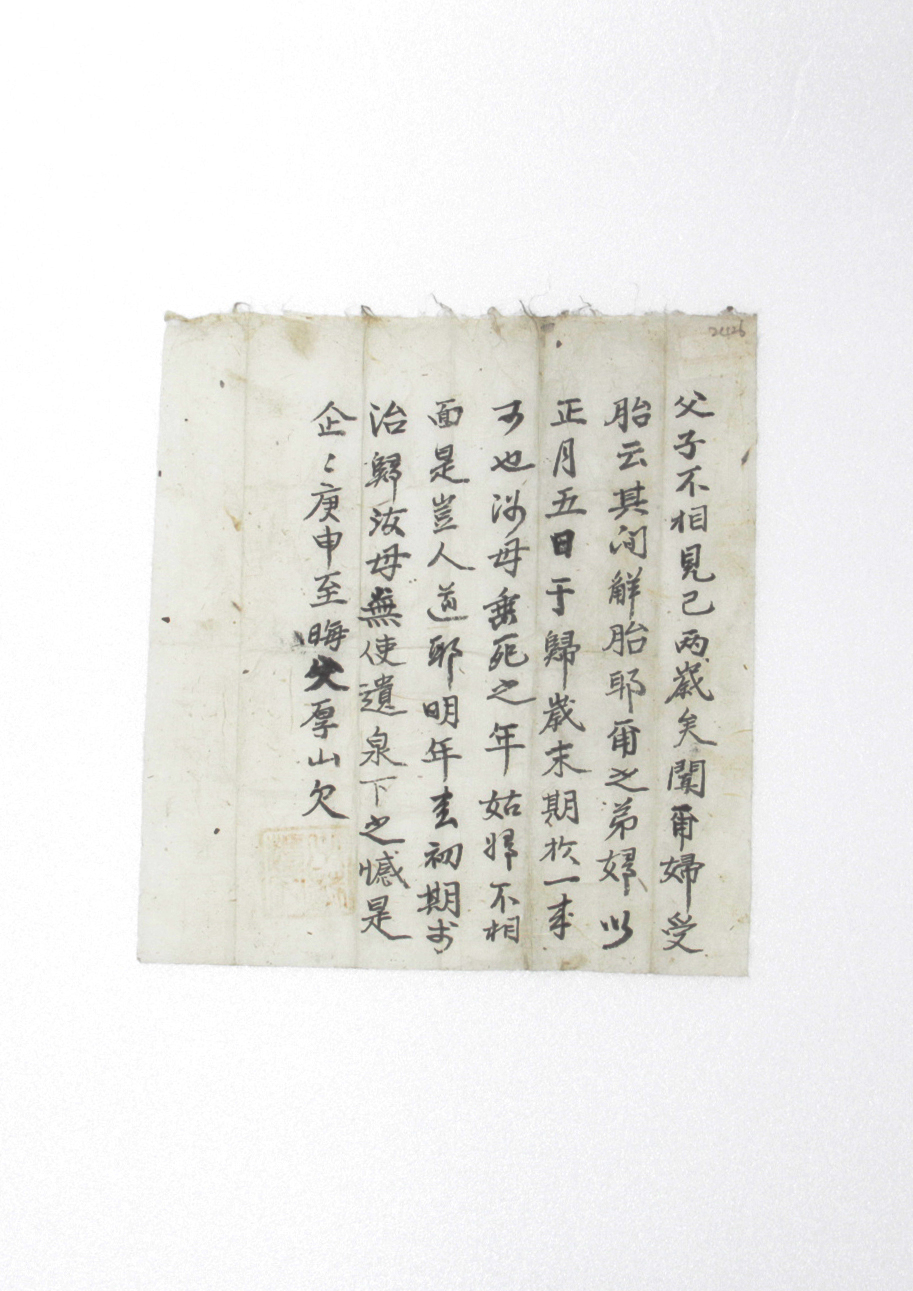 父子不相見已兩歲矣聞爾婦受
胎云其间解胎耶爾之弟婦以
正月五日于歸歲末期於一來
可也汝母垂死之年姑婦不相
面是豈人道耶明年春初期於
治歸汝母無使遺泉下之憾是
企〻庚申至晦父厚山欠
2426